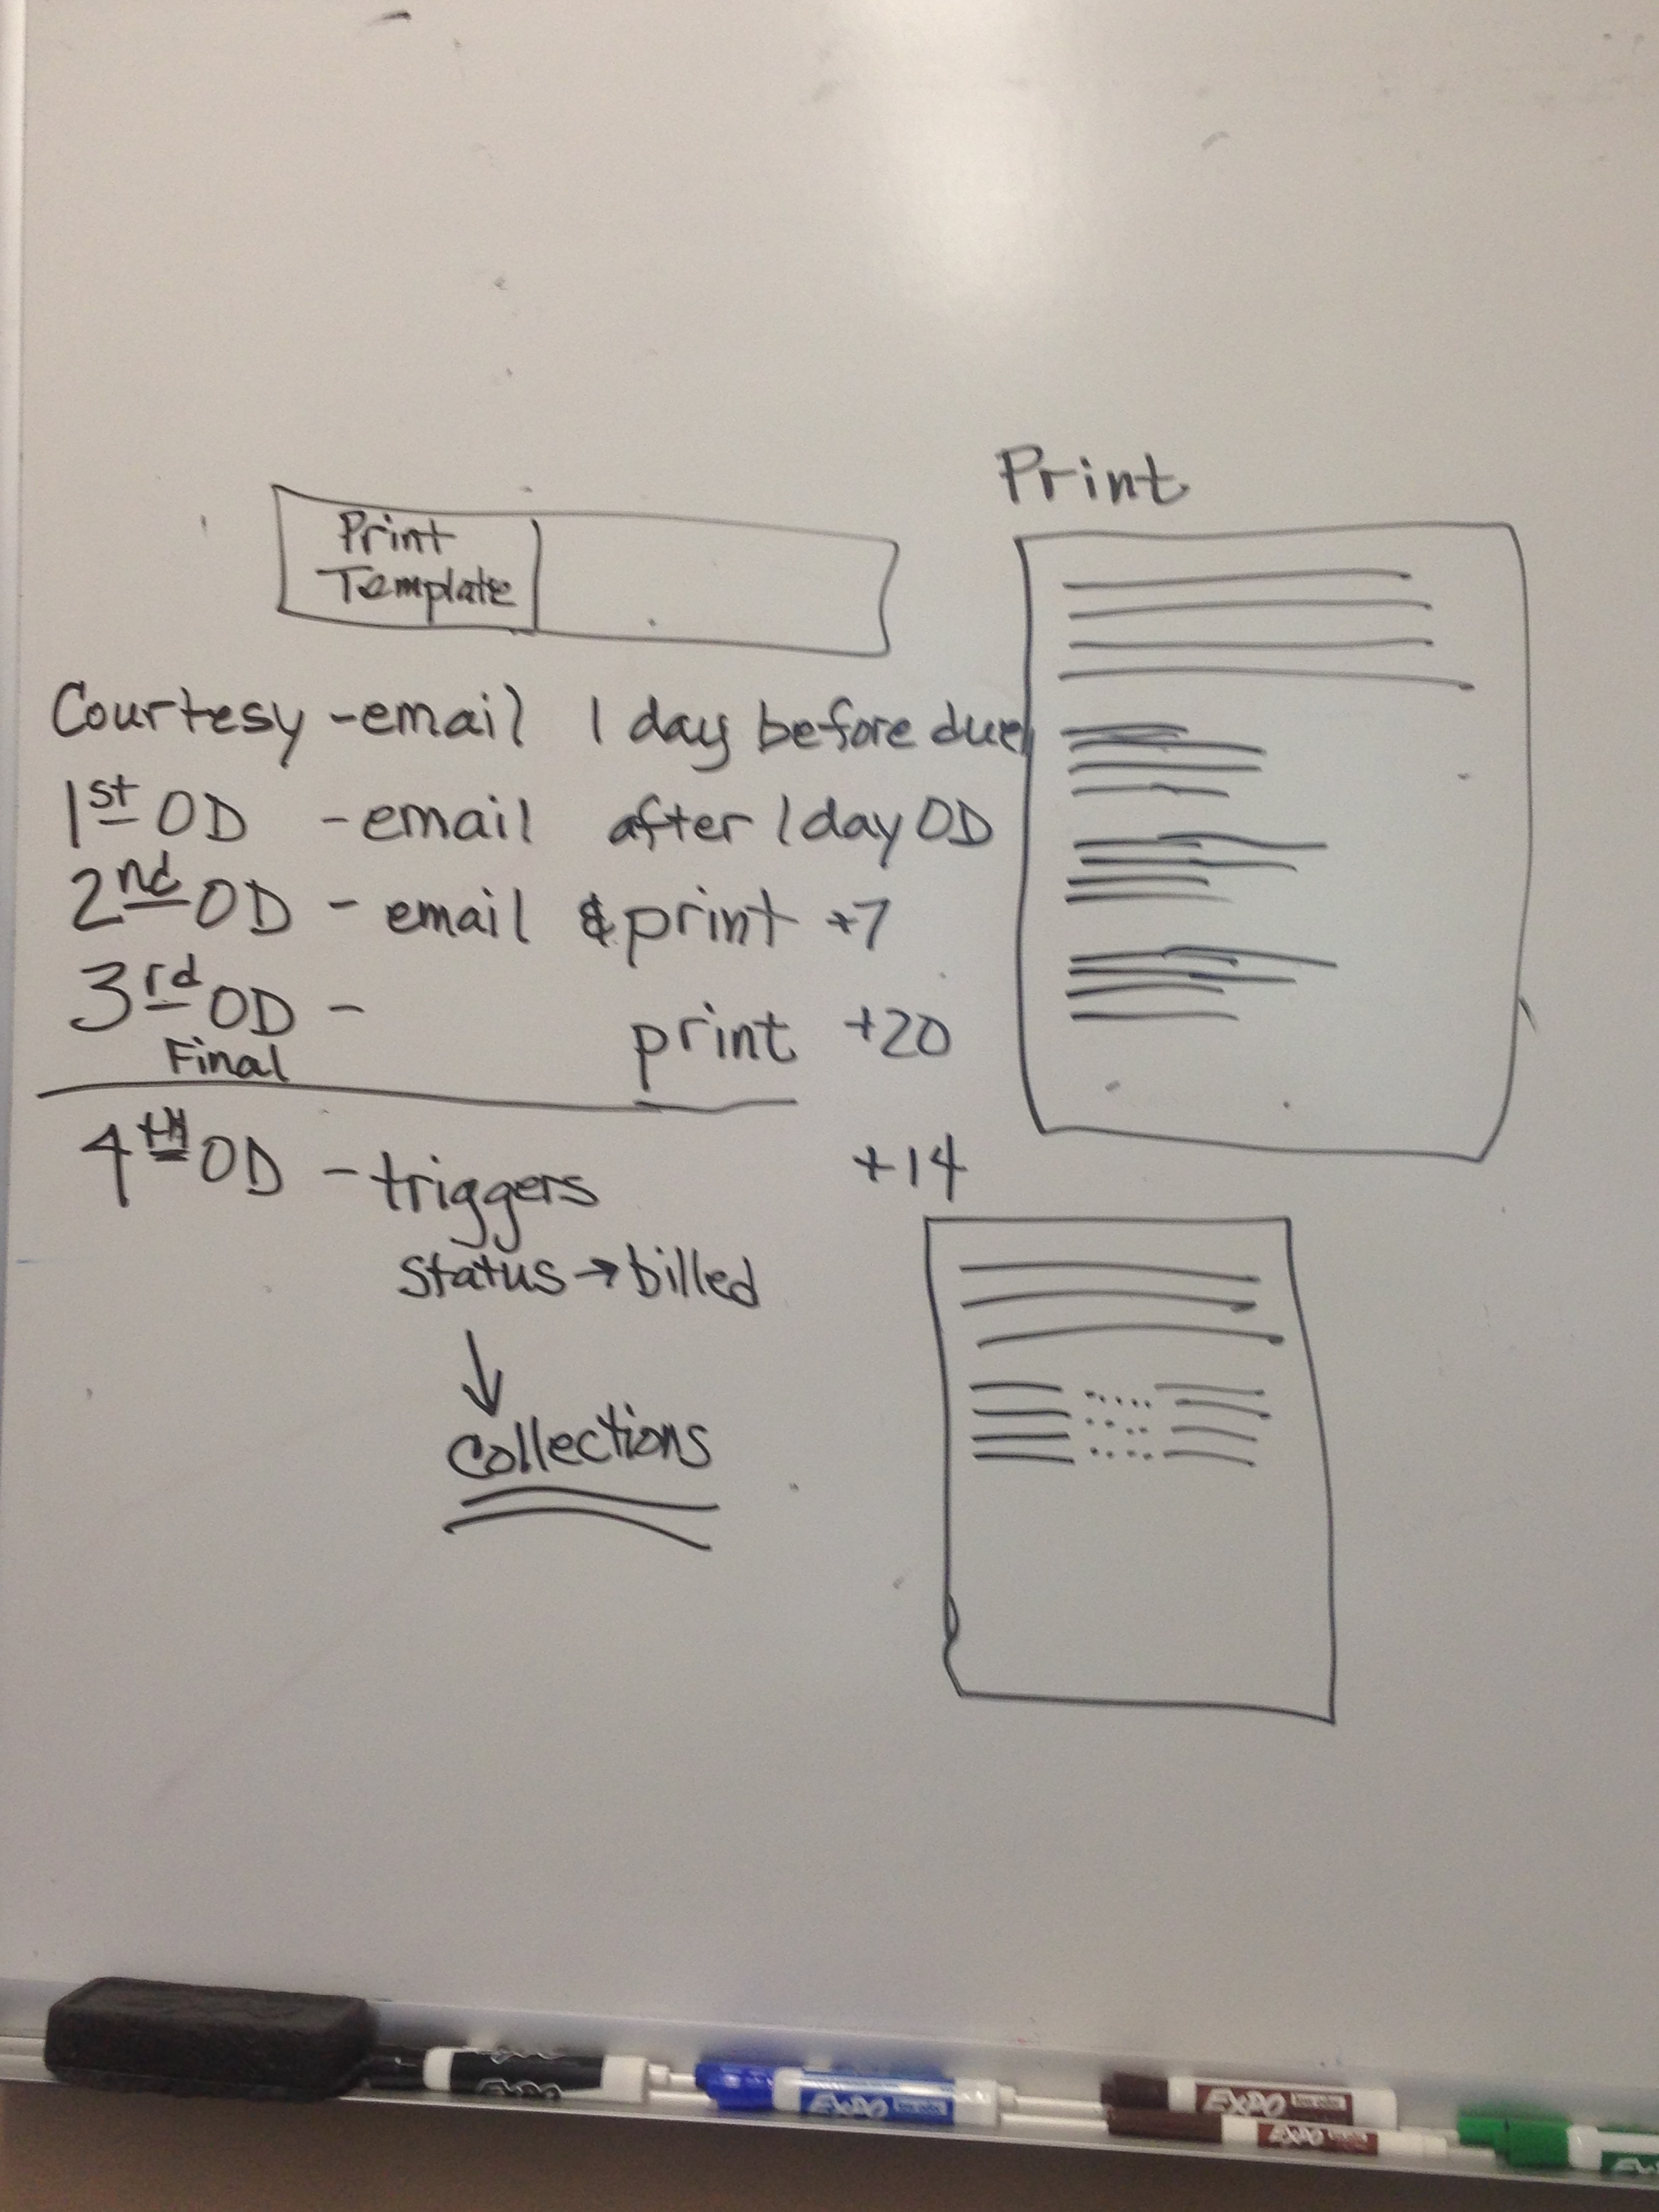 Print
Print
Template
Courtesy - email 1 day before due
1st OD - email after 1 day OD
2nd OD - email & print +7
3rd OD - print +20
Final
4th OD - triggers +14
status → billed
↓
Collections
EXPO
EXPO
EXPO
EXPO